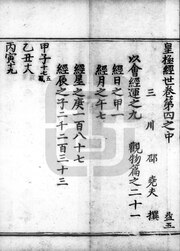 皇極經世卷第四之中
三川 邵堯夫 撰
以會經運之九
觀物篇之二十一
經日之甲一
經月之午七
經星之庚一百八十七
經辰之子二千二百三十三
甲子十七
乙丑大
丙寅十九